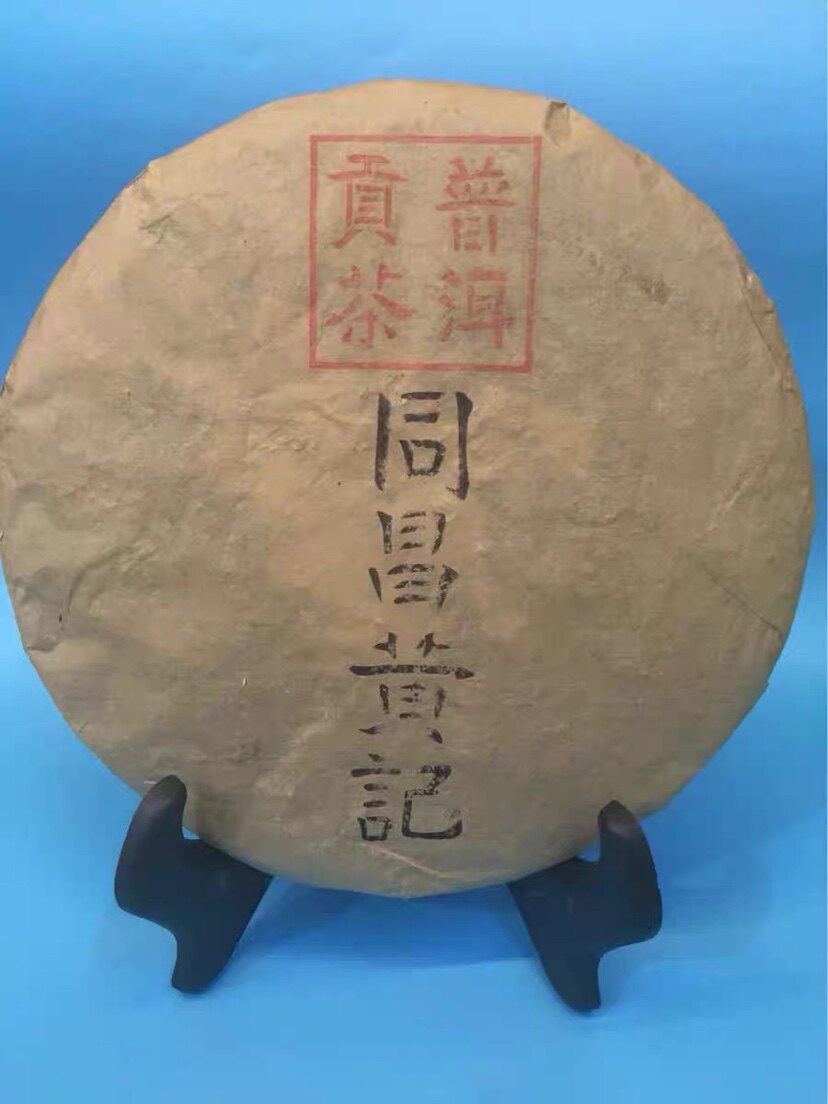 普洱
貢茶
同昌黄記